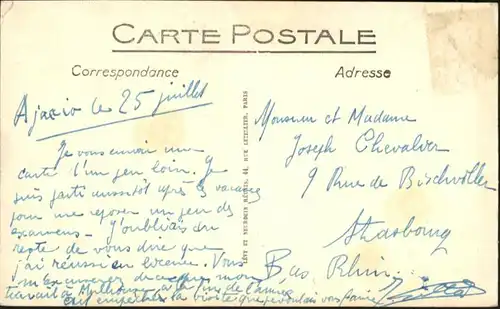 CARTE POSTALE
Correspondance
Adresse
Ajaccio le 25 juillet
Je vous envoie une
carte d'un peu loin. Je
suis parti aussitôt après les vacances
pour me reposer un peu des
examens. J'oubliais du
reste de vous dire que
j'ai réussi en licence. Vous
m'excuserez
travail à Mulhouse à la fin de l'année
ait empêché la visite que je voulais vous faire
LÉVY ET NEURDEIN RÉUNIS, 44, RUE LETELLIER, PARIS
Monsieur et Madame
Joseph Chevalier
9 Rue de Bischwiller
Strasbourg
Bas Rhin